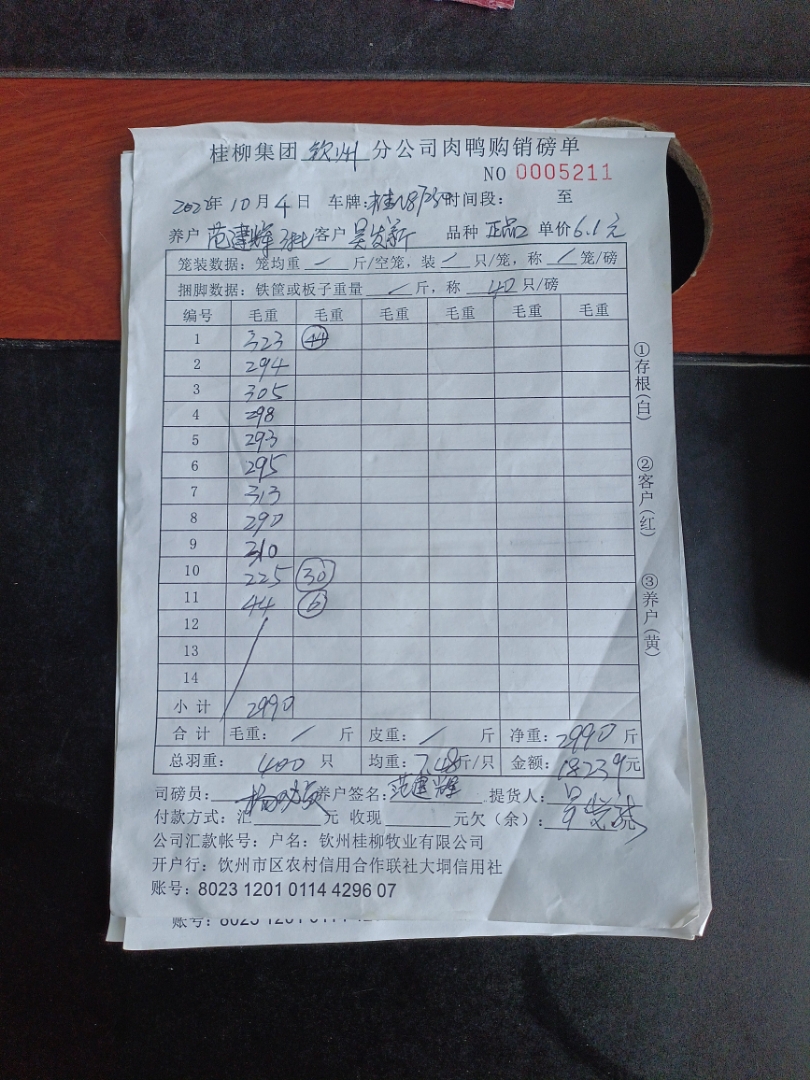 桂柳集团 钦州 分公司肉鸭购销磅单
NO 0005211
2022年10月4日 车牌: 时间段: 至
养户 范建辉 客户 吴发新 品种 正品 单价6.1元
笼装数据:笼均重 / 斤/空笼,装 / 只/笼,称 / 笼/磅
捆脚数据:铁筐或板子重量 / 斤,称 40 只/磅
编号 毛重 毛重 毛重 毛重 毛重 毛重
1 323 44
2 294
3 305
4 298
5 293
6 295
7 313
8 290
9 310
10 225 30
11 44 6
12
13
14
小计 2990
合计 毛重: / 斤 皮重: / 斤 净重:2990斤
总羽重: 400 只 均重:7.48斤/只 金额:18239元
司磅员: 养户签名:范建辉 提货人:吴发新
付款方式:汇 元 收现 元欠(余):
公司汇款帐号:户名:钦州桂柳牧业有限公司
开户行:钦州市区农村信用合作联社大垌信用社
账号:8023 1201 0114 4296 07
账号:8023 1201 0114
①存根(白)
②客户(红)
③养户(黄)